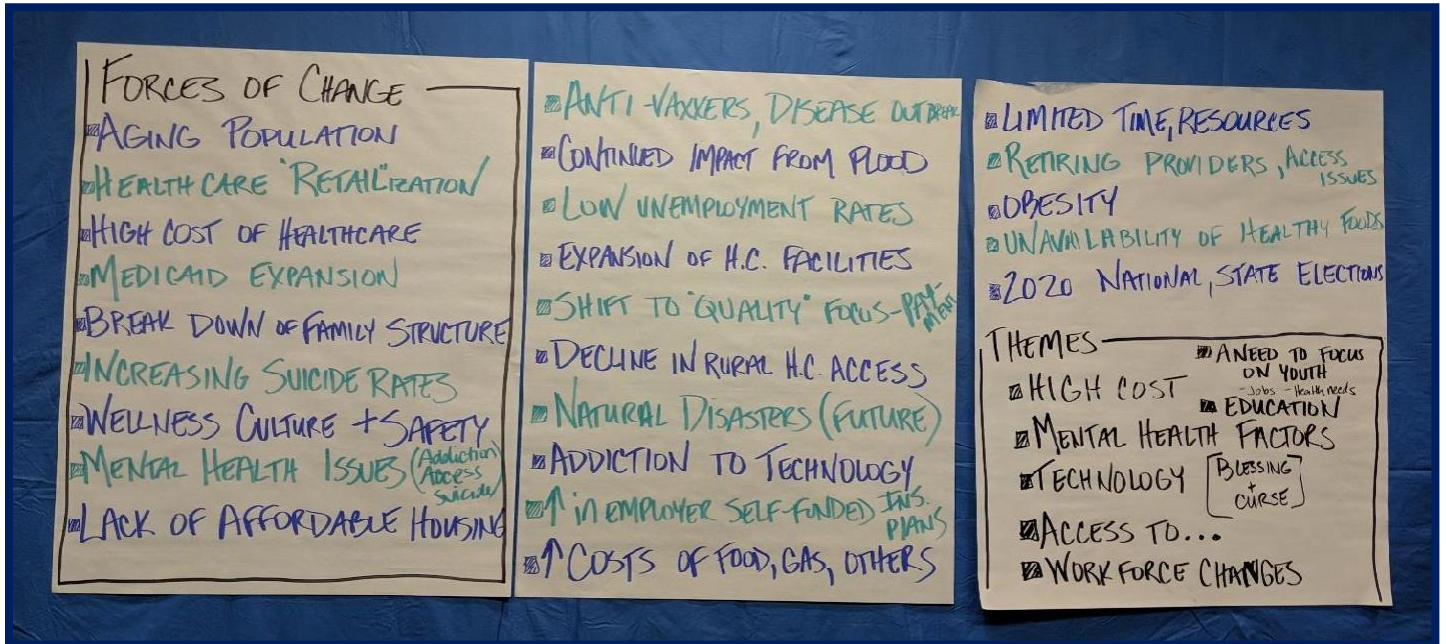 FORCES OF CHANGE
AGING POPULATION
HEALTHCARE "RETAIL"IZATION
HIGH COST OF HEALTHCARE
MEDICAID EXPANSION
BREAK DOWN OF FAMILY STRUCTURE
INCREASING SUICIDE RATES
WELLNESS CULTURE + SAFETY
MENTAL HEALTH ISSUES (Addiction
Access
Suicide)
LACK OF AFFORDABLE HOUSING
ANTI-VAXXERS, DISEASE OUTBREAK
CONTINUED IMPACT FROM FLOOD
LOW UNEMPLOYMENT RATES
EXPANSION OF H.C. FACILITIES
SHIFT TO "QUALITY" FOCUS - PAY-
MENT
DECLINE IN RURAL H.C. ACCESS
NATURAL DISASTERS (FUTURE)
ADDICTION TO TECHNOLOGY
↑ in EMPLOYER SELF-FUNDED INS.
PLANS
↑ COSTS OF FOOD, GAS, OTHERS
LIMITED TIME, RESOURCES
RETIRING PROVIDERS, ACCESS
ISSUES
OBESITY
UNAVAILABILITY OF HEALTHY FOODS
2020 NATIONAL, STATE ELECTIONS
THEMES
HIGH COST
A NEED TO FOCUS
ON YOUTH
- Jobs - Health needs
EDUCATION
MENTAL HEALTH FACTORS
TECHNOLOGY [BLESSING
+
CURSE]
ACCESS TO...
WORKFORCE CHANGES